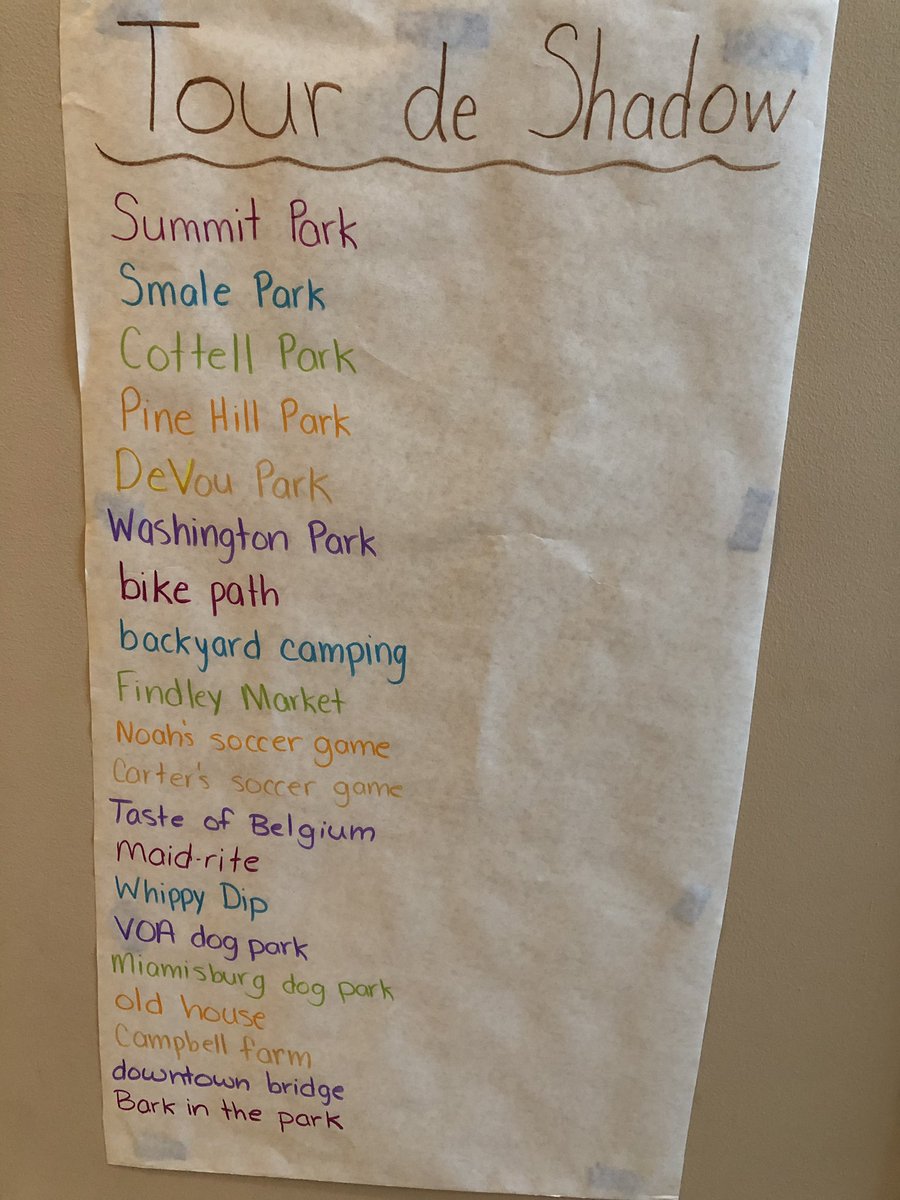 Tour de Shadow
Summit Park
Smale Park
Cottell Park
Pine Hill Park
DeVou Park
Washington Park
bike path
backyard camping
Findley Market
Noah's soccer game
Carter's soccer game
Taste of Belgium
Maid-rite
Whippy Dip
VOA dog park
Miamisburg dog park
old house
Campbell farm
downtown bridge
Bark in the park